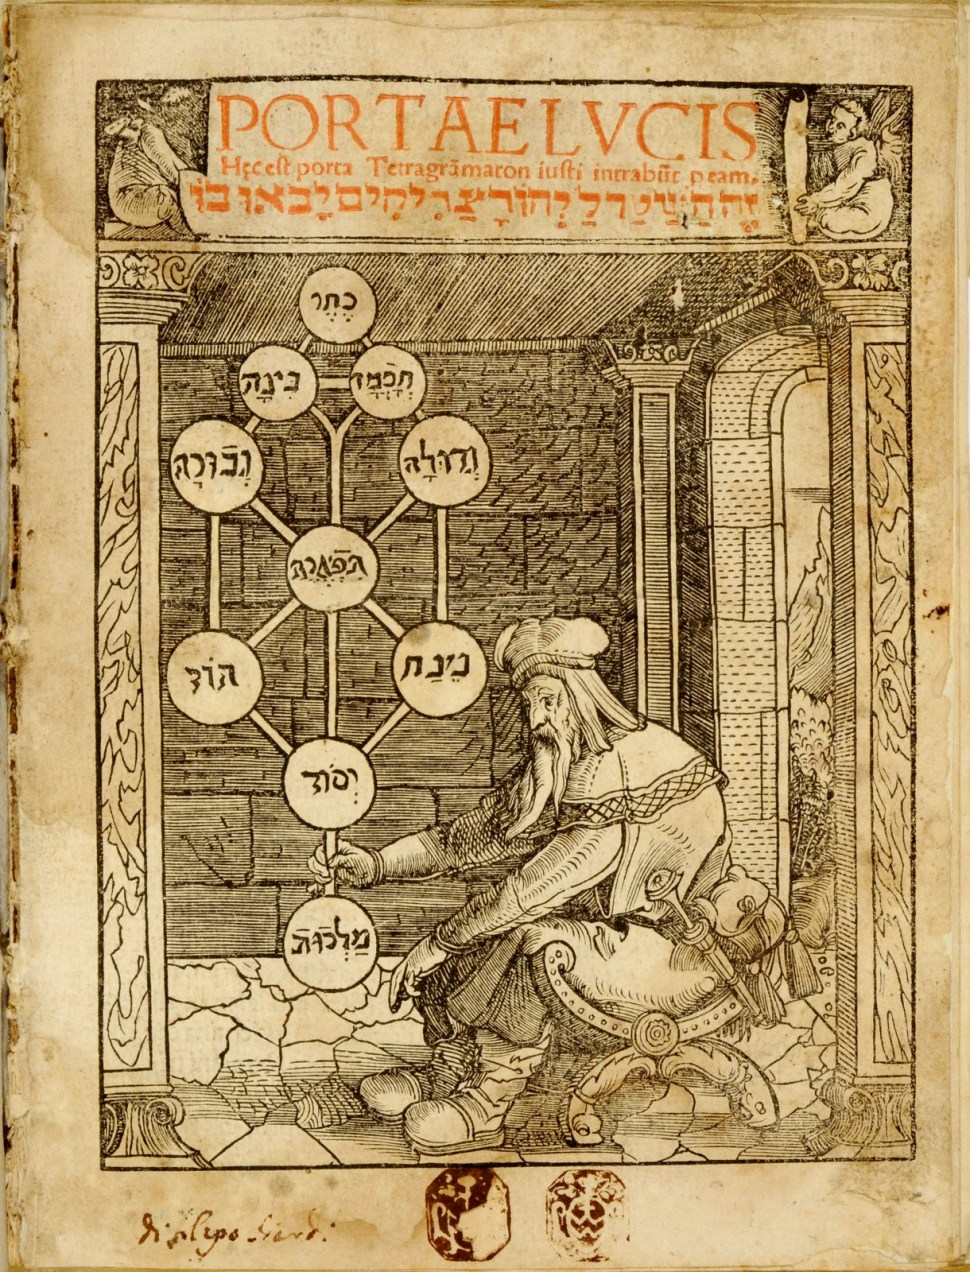 PORTAE LVCIS
Hęc est porta Tetragrāmaton iusti intrabūt p eam.
זה השער ליהוה צדיקים יבאו בו
כתר
בינה חכמה
גבורה גדולה
תפארת
הוד נצח
יסוד
מלכות